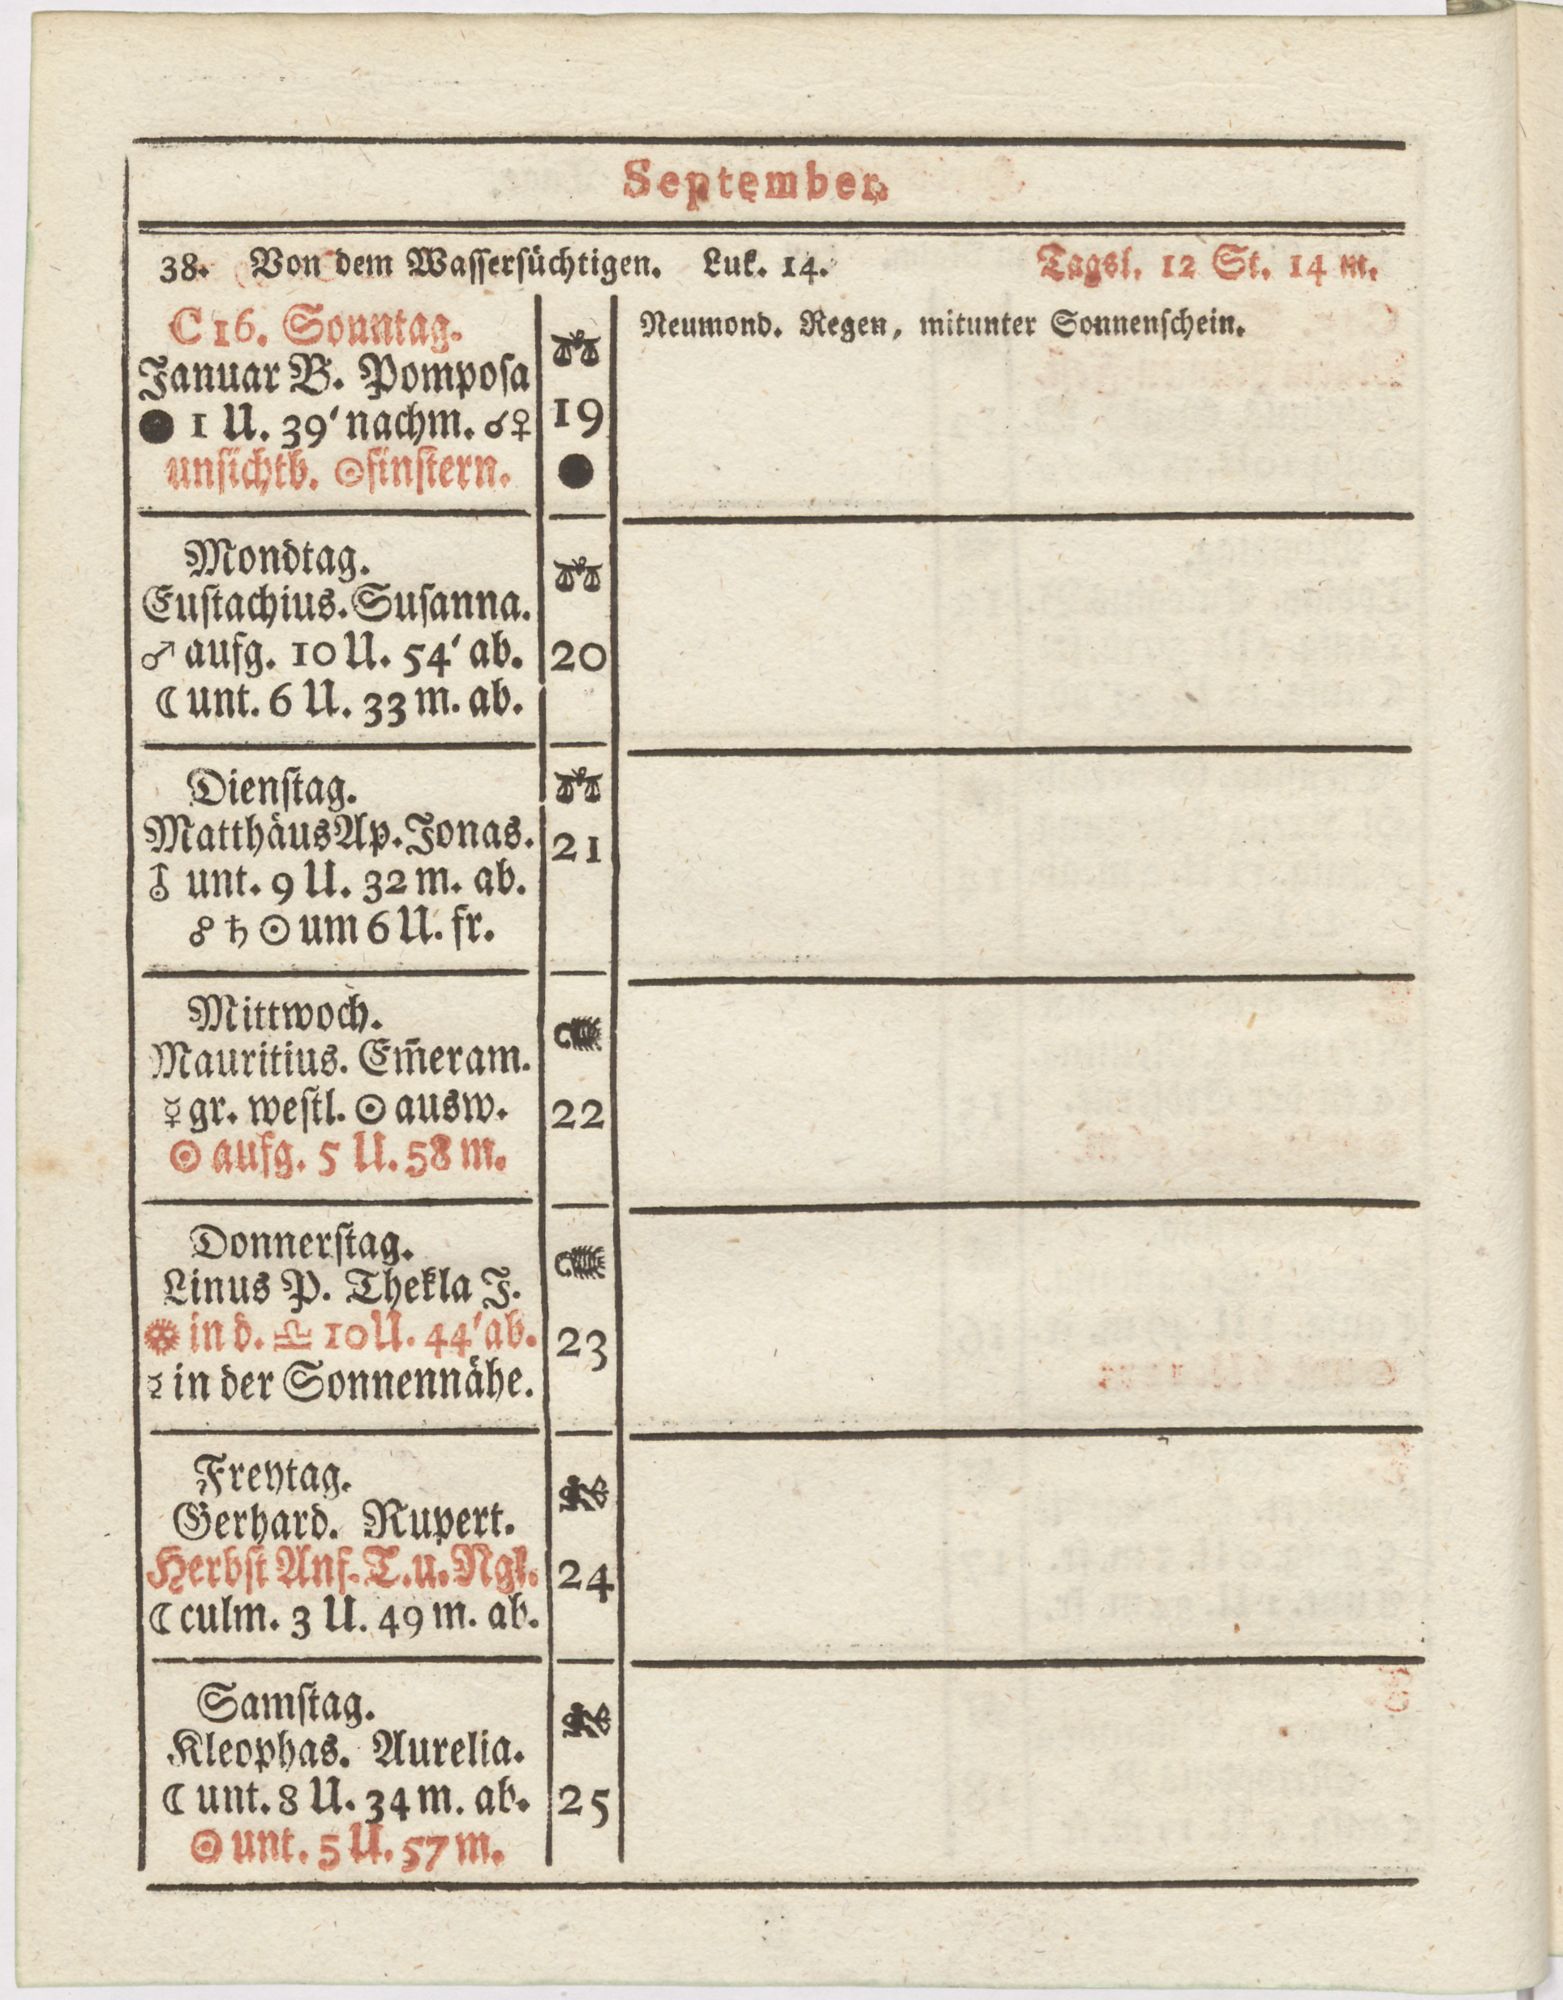 September.
38. Von dem Wassersüchtigen. Luk. 14. Tagsl. 12 St. 14 m.
C 16. Sonntag.
Januar B. Pomposa
● 1 U. 39' nachm. ☌♀
unsichtb. ☉finstern.
19
●
Neumond. Regen, mitunter Sonnenschein.
Mondtag.
Eustachius. Susanna.
♂ aufg. 10 U. 54' ab.
☾ unt. 6 U. 33 m. ab.
20
Dienstag.
Matthäus Ap. Jonas.
⛢ unt. 9 U. 32 m. ab.
☍ ♄ ☉ um 6 U. fr.
21
Mittwoch.
Mauritius. Em̄eram.
☿ gr. westl. ☉ ausw.
☉ aufg. 5 U. 58 m.
22
Donnerstag.
Linus P. Thekla J.
☀ in d. ♎ 10 U. 44' ab.
☿ in der Sonnennähe.
23
Freytag.
Gerhard. Rupert.
Herbst Anf. T. u. Ngl.
☾ culm. 3 U. 49 m. ab.
24
Samstag.
Kleophas. Aurelia.
☾ unt. 8 U. 34 m. ab.
☉ unt. 5 U. 57 m.
25